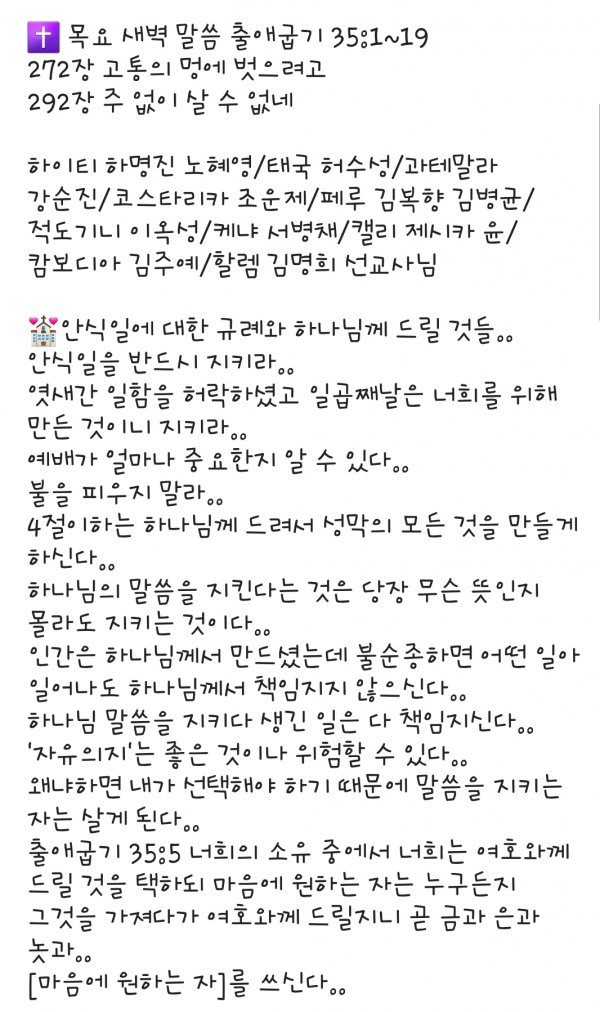 ✝️ 목요 새벽 말씀 출애굽기 35:1~19
272장 고통의 멍에 벗으려고
292장 주 없이 살 수 없네
하이티 하명진 노혜영/태국 허수성/과테말라
강순진/코스타리카 조운제/페루 김복향 김병균/
적도기니 이옥성/케냐 서병채/캘리 제시카 윤/
캄보디아 김주예/할렘 김명희 선교사님
💒안식일에 대한 규례와 하나님께 드릴 것들。。
안식일을 반드시 지키라。。
엿새간 일함을 허락하셨고 일곱째날은 너희를 위해
만든 것이니 지키라。。
예배가 얼마나 중요한지 알 수 있다。。
불을 피우지 말라。。
4절이하는 하나님께 드려서 성막의 모든 것을 만들게
하신다。。
하나님의 말씀을 지킨다는 것은 당장 무슨 뜻인지
몰라도 지키는 것이다。。
인간은 하나님께서 만드셨는데 불순종하면 어떤 일아
일어나도 하나님께서 책임지지 않으신다。。
하나님 말씀을 지키다 생긴 일은 다 책임지신다。。
'자유의지'는 좋은 것이나 위험할 수 있다。。
왜냐하면 내가 선택해야 하기 때문에 말씀을 지키는
자는 살게 된다。。
출애굽기 35:5 너희의 소유 중에서 너희는 여호와께
드릴 것을 택하되 마음에 원하는 자는 누구든지
그것을 가져다가 여호와께 드릴지니 곧 금과 은과
놋과。。
[마음에 원하는 자]를 쓰신다。。